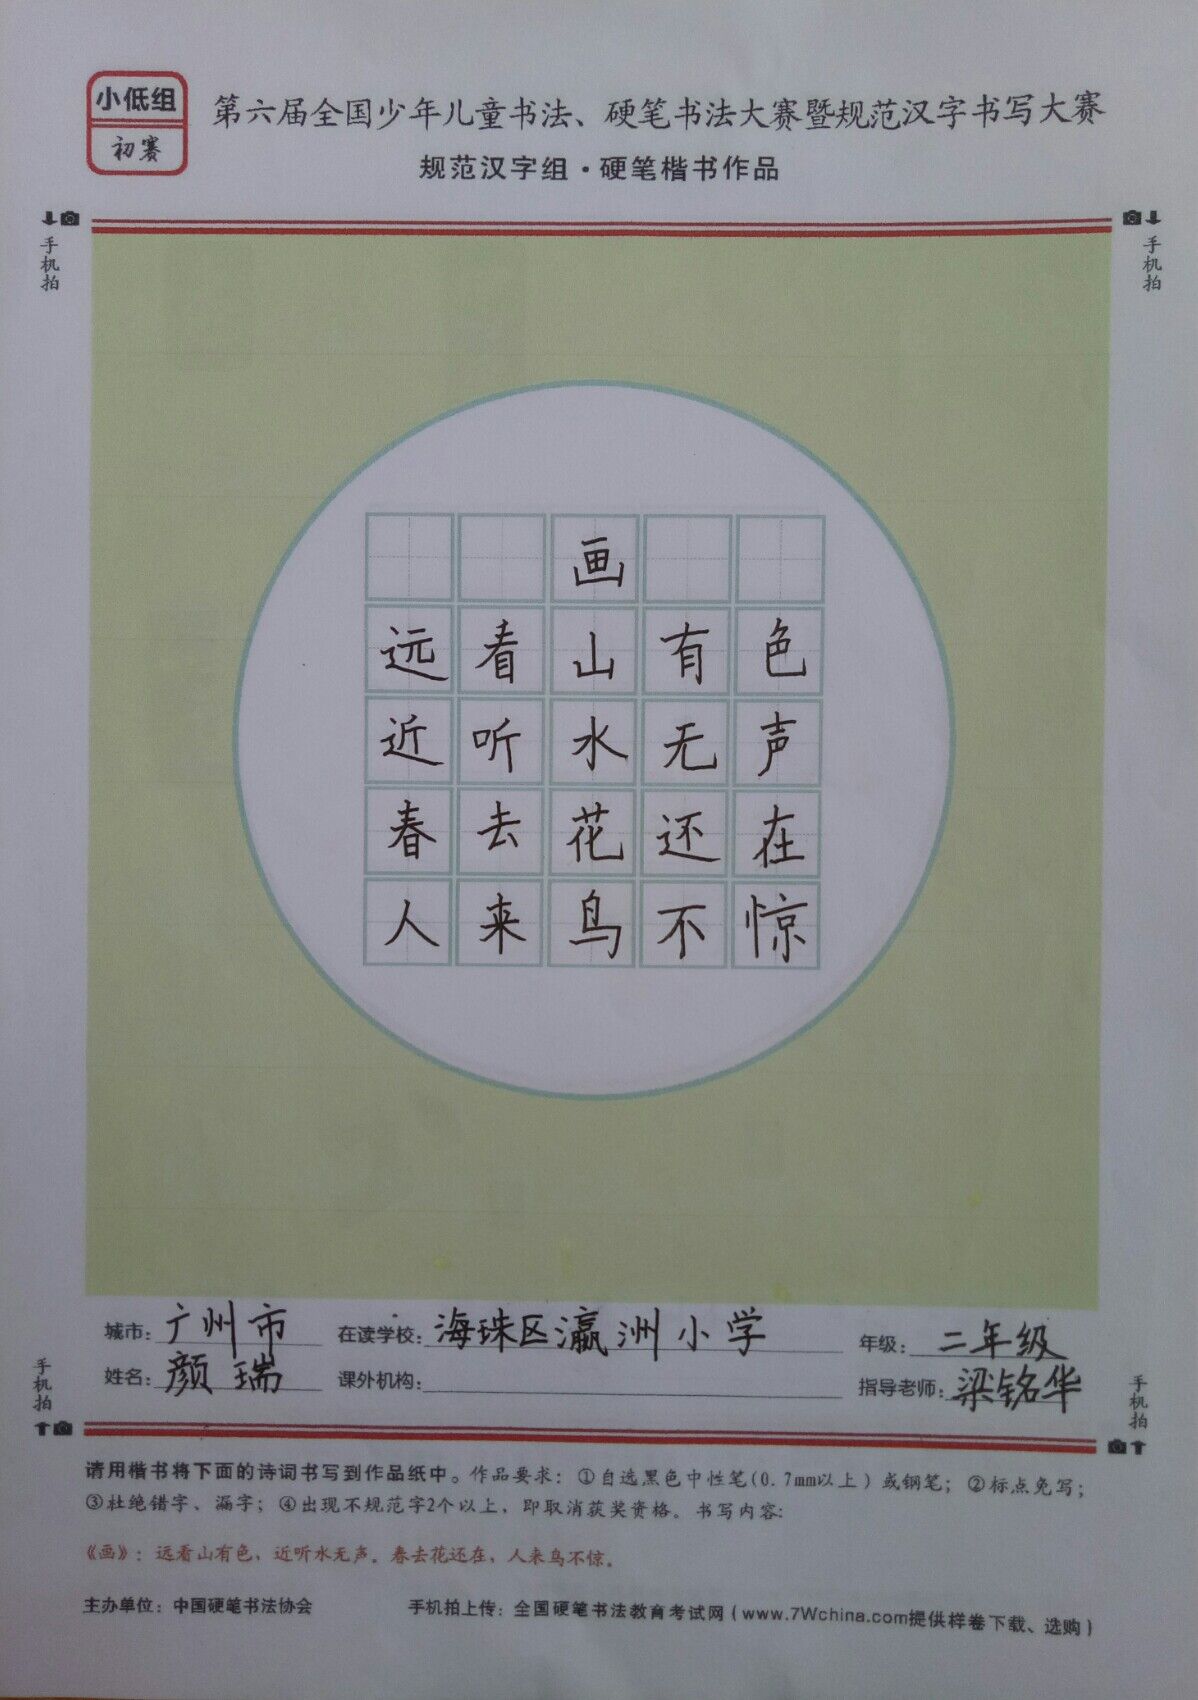 小低组
初赛
第六届全国少年儿童书法、硬笔书法大赛暨规范汉字书写大赛
规范汉字组·硬笔楷书作品
手机拍
手机拍
画
远看山有色
近听水无声
春去花还在
人来鸟不惊
城市：广州市 在读学校：海珠区瀛洲小学 年级：二年级
姓名：颜瑞 课外机构： 指导老师：梁铭华
手机拍
手机拍
请用楷书将下面的诗词书写到作品纸中。作品要求：①自选黑色中性笔(0.7mm以上）或钢笔；②标点免写；
③杜绝错字、漏字；④出现不规范字2个以上，即取消获奖资格。书写内容:
《画》：远看山有色，近听水无声。春去花还在，人来鸟不惊。
主办单位：中国硬笔书法协会 手机拍上传：全国硬笔书法教育考试网（www.7Wchina.com提供样卷下载、选购）